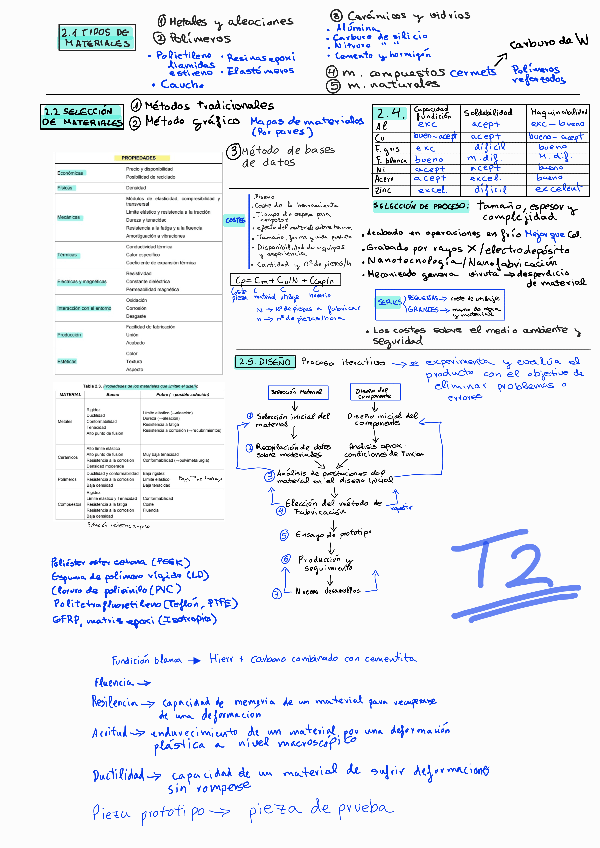 2.1 TIPOS DE
MATERIALES
① Metales y aleaciones
② Polímeros
• Polietileno
estireno
• Caucho
• Resinas epoxi
• Elastómeros
③ Cerámicos y vidrios
• Alúmina
• Carburo de silicio
• Nitruro " "
• Cemento y hormigón
④ m. compuestos cermets
Carburo de W
Polímeros
reforzados
⑤ m. naturales
2.2 SELECCIÓN
DE MATERIALES
① Métodos tradicionales
② Método gráfico Mapas de materiales
(Por pares)
③ Método de bases
de datos
PROPIEDADES
Económicas
Precio y disponibilidad
Posibilidad de reciclado
Físicas
Densidad
Mecánicas
Módulos de elasticidad, compresibilidad y
transversal
Límite elástico y resistencia a la tracción
Dureza y tenacidad
Resistencia a la fatiga y a la fluencia
Amortiguación a vibraciones
Térmicas
Conductividad térmica
Calor específico
Coeficiente de expansión térmica
Eléctricas y magnéticas
Resistividad
Constante dieléctrica
Permeabilidad magnética
Interacción con el entorno
Oxidación
Corrosión
Desgaste
Producción
Facilidad de fabricación
Unión
Acabado
Estéticas
Color
Textura
Aspecto
COSTES
• Diseño
• Coste de la herramienta
• Tiempo de espera para
• Tamaño, forma y
• Disponibilidad de equipos
y experiencia
• Cantidad y nº de piezas/h
Cp = Cm + Cu/N + Ccap/n
N → nº de piezas a fabricar
n → nº de piezas/hora
2.4.
Capacidad
fundición
Soldabilidad
Maquinabilidad
Al exc acept exc - bueno
Cu buen-acept acept bueno-acept
F. gris exc difícil bueno
F. blanca bueno m. dif. m. dif.
Ni acept acept bueno
Acero acept excel. bueno
Zinc excel. difícil excelent
SELECCIÓN DE PROCESO: Tamaño, espesor y
complejidad
• Acabado en operaciones en frío Mejor que Cal.
• Grabado por rayos X / electrodepósito
• Nanotecnología / Nanofabricación
• Mecanizado genera viruta → desperdicio
de material
SERIES
PEQUEÑA → coste de utillaje
GRANDES → mano de obra
y material
• Los costes sobre el medio ambiente y
seguridad
Tabla 2.3. Propiedades de los materiales que limitan el diseño
MATERIAL
Metales
Rigidez
Ductilidad
Conformabilidad
Tenacidad
Alto punto de fusión
Límite elástico (→aleación)
Dureza (→aleación)
Resistencia a la fatiga
Resistencia a corrosión (→recubrimientos)
Cerámicos
Alto límite elástico
Alto punto de fusión
Resistencia a la corrosión
Densidad moderada
Muy baja tenacidad
Conformabilidad (→pulvimetalurgia)
Polímeros
Ductilidad y conformabilidad
Resistencia a la corrosión
Baja densidad
Baja rigidez
Límite elástico
Baja tenacidad
Compuestos
Rigidez
Límite elástico y Tenacidad
Resistencia a la fatiga
Resistencia a la corrosión
Baja densidad
Conformabilidad
Coste
Fluencia
2.5. DISEÑO Proceso iterativo → se experimenta y evalúa el
producto con el objetivo de
eliminar problemas o
errores
Selección Material
Diseño del
Componente
① Selección inicial del
material
Diseño inicial del
componente
② Recopilación de datos
sobre materiales
Análisis aprox
condiciones de func.
③ Análisis de prestaciones del
material en el diseño inicial
④ Elección del método de
Fabricación
repetir
⑤ Ensayo de prototipo
⑥ Producción y
seguimiento
⑦ Nuevos desarrollos
T2
Poliéster eter cetona (PEEK)
Espuma de polímero rígido (LD)
Cloruro de polivinilo (PVC)
Politetrafluoretileno (Teflón, PTFE)
GFRP, matriz epoxi (Isotropía)
Fundición blanca → Hierr + carbono combinado con cementita
Fluencia →
Resilencia → capacidad de memoria de un material para recuperarse
de una deformacion
Acritud → endurecimiento de un material por una deformación
plástica a nivel macroscópico
Ductilidad → capacidad de un material de sufrir deformaciones
sin romperse
Pieza prototipo → pieza de prueba